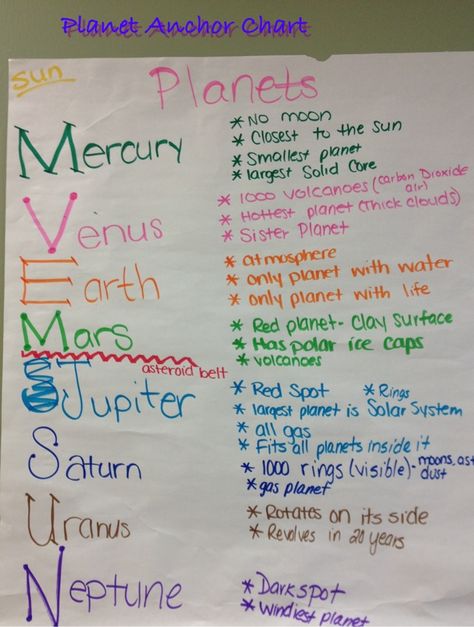 Planet Anchor Chart
Sun
Planets
Mercury
* No moon
* Closest to the sun
* Smallest planet
* largest Solid Core
Venus
* 1000 volcanoes (Carbon Dioxide air)
* Hottest planet (Thick clouds)
* Sister Planet
Earth
* atmosphere
* only planet with water
* only planet with life
Mars
* Red planet - Clay Surface
* Has polar ice caps
* volcanoes
asteroid belt
Jupiter
* Red Spot * Rings
* largest planet is Solar System
* all gas
* Fits all planets inside it
Saturn
* 1000 rings (visible) - moons, ast
dust
* gas planet
Uranus
* Rotates on its side
* Revolves in 20 years
Neptune
* Dark spot
* Windiest planet